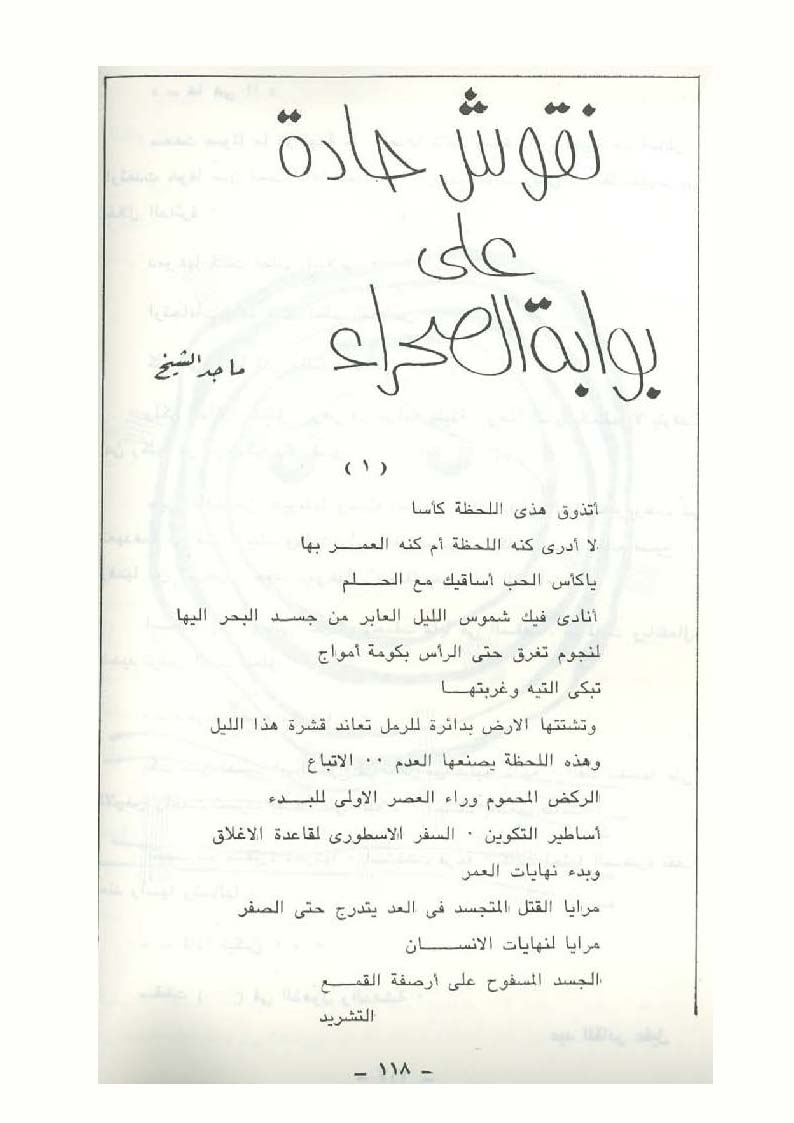 نقوش حادة
على
بوابة الصحراء
ماجد الشيخ
( ١ )
أتذوق هذى اللحظة كأسا
لا أدرى كنه اللحظة أم كنه العمــر بها
ياكأس الحب أساقيك مع الحــلم
أنادى فيك شموس الليل العابر من جســد البحر اليها
لنجوم تغرق حتى الرأس بكومة أمواج
تبكى التيه وغربتهــا
وتشتتها الارض بدائرة للرمل تعاند قشرة هذا الليل
وهذه اللحظة يصنعها العدم ٠٠ الاتباع
الركض المحموم وراء العصر الاولى للبــدء
أساطير التكوين ٠ السفر الاسطورى لقاعدة الاغلاق
وبدء نهايات العمر
مرايا القتل المتجسد فى العد يتدرج حتى الصفر
مرايا لنهايات الانســـان
الجسد المسفوح على أرصفة القمــع
التشريد
– ١١٨ –